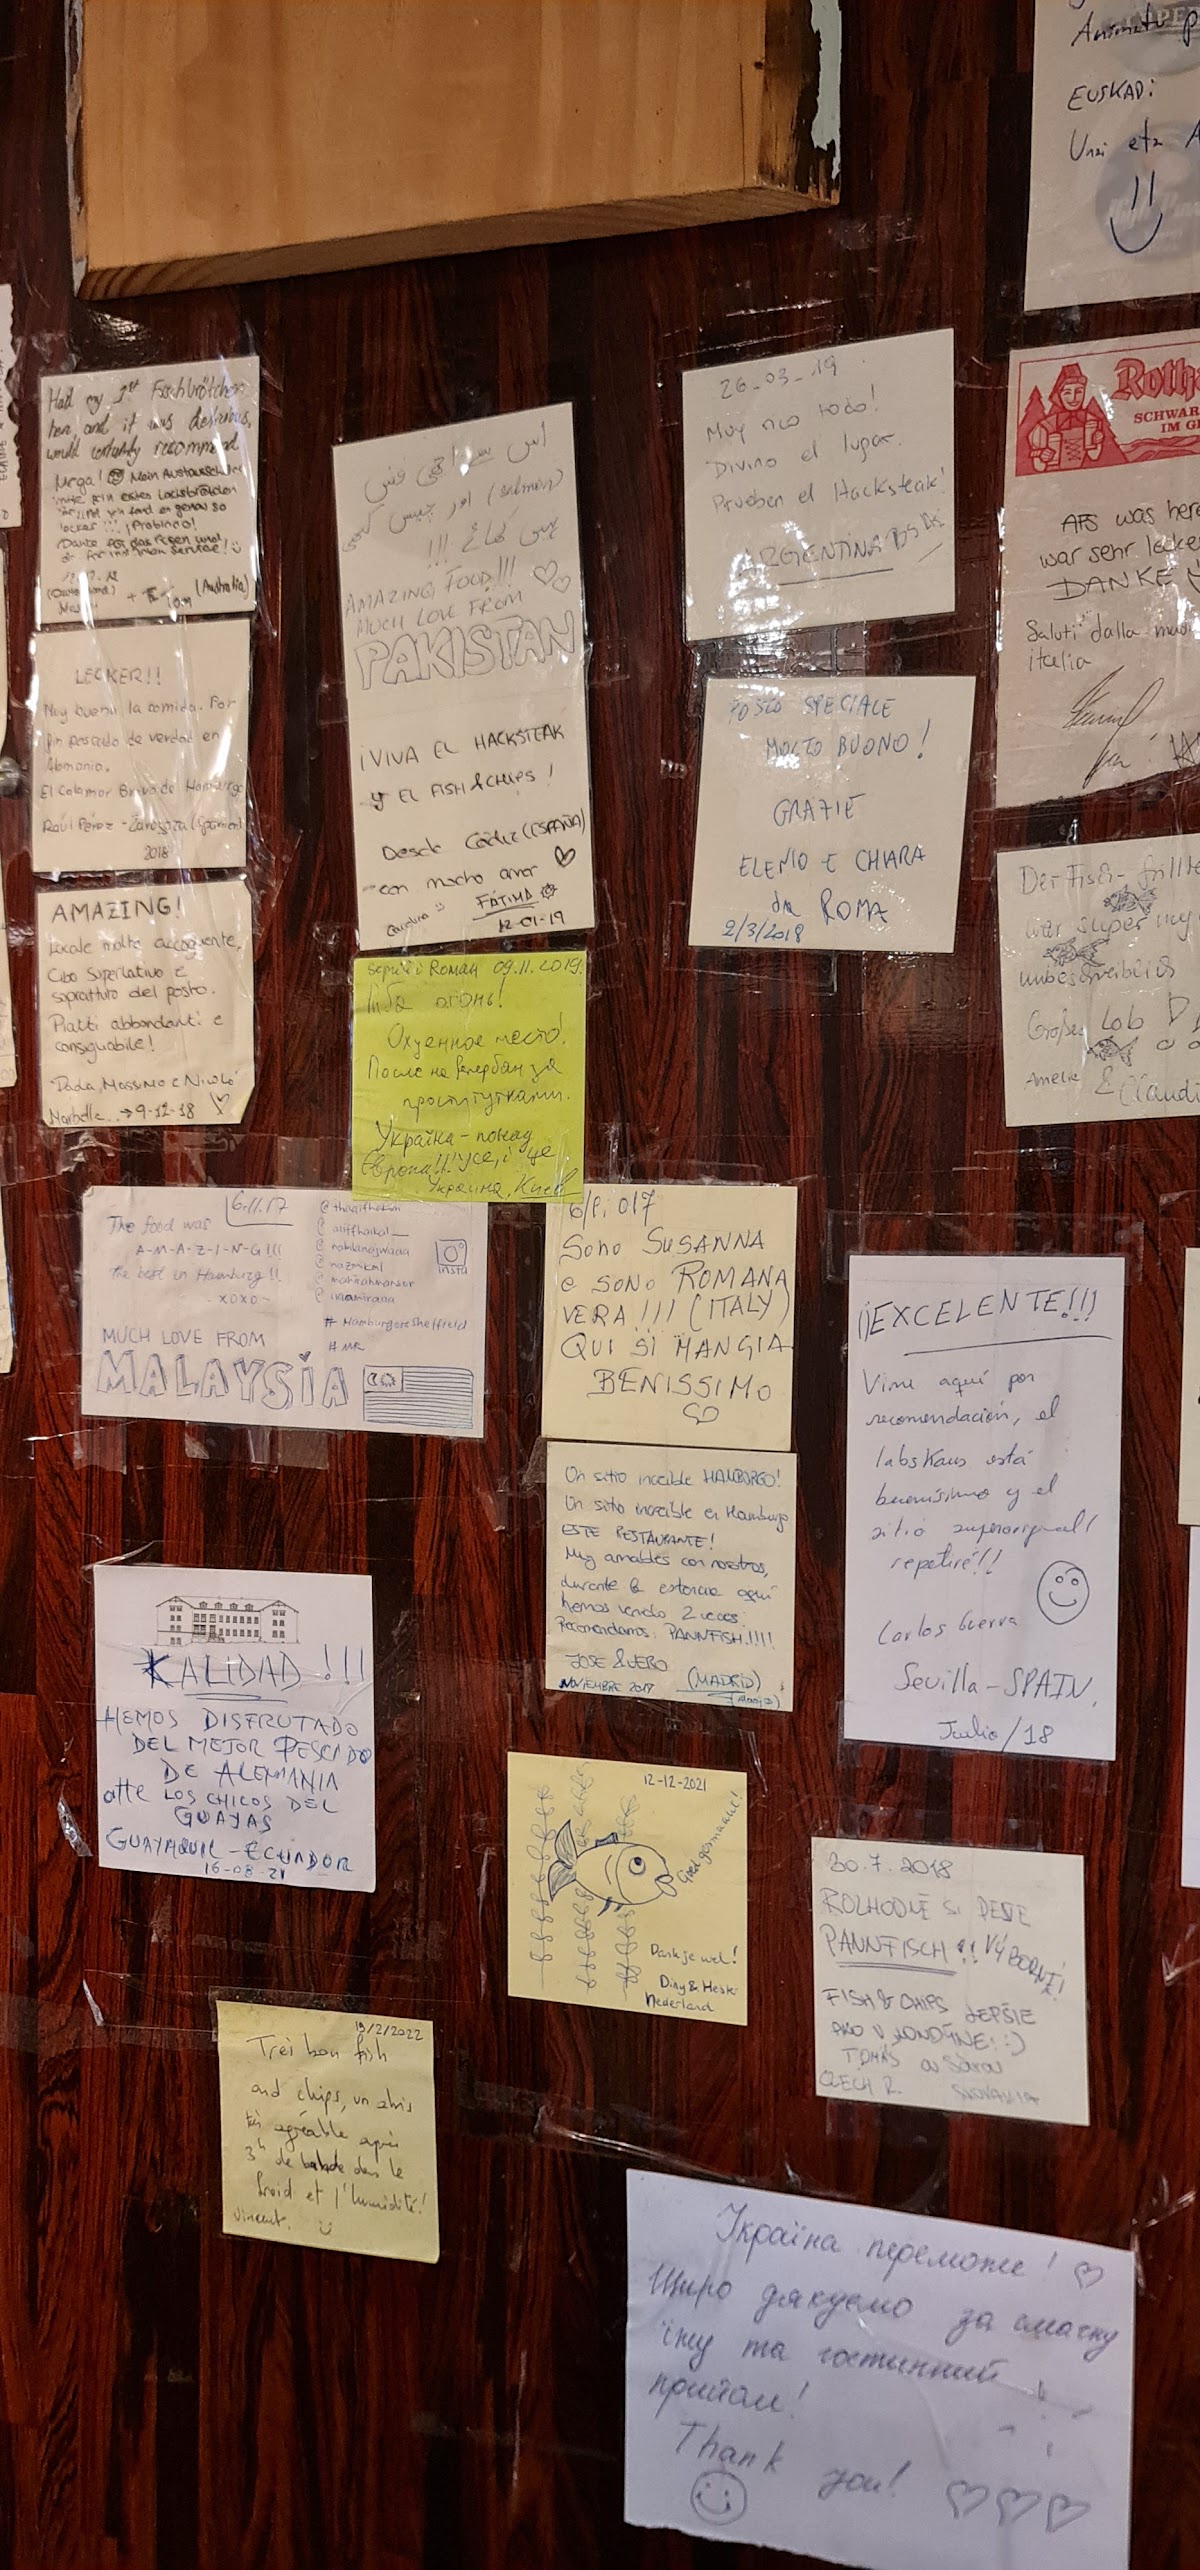 Animatu
EUSKADI
Unai eta A
Had my 1st Fischbrötchen
here, and it was delicious,
would certainly recommend
Mega! Mein Austauschschüler
Danke für das Essen und
(Australia)
Tom
LECKER!!
Muy buena la comida. Por
fin pescado de verdad en
Alemania.
El Calamar Bravo de Hamburgo
Raúl Pérez - Zaragoza (Spanien)
2018
AMAZING!
Locale molto accogliente,
Cibo superlativo e
soprattutto del posto.
Piatti abbondanti e
consigliabile!
Dada, Massimo e Nicolò
9-12-18
(salmon) اور چپس
!!!
AMAZING FOOD!!!
MUCH LOVE FROM
PAKISTAN
¡VIVA EL HACKSTEAK
Y EL FISH & CHIPS!
Desde Cádiz (ESPAÑA)
con mucho amor
Carolina FÁTIMA
12-01-19
26_03_19
Muy rico todo!
Divino el lugar.
Prueben el Hacksteak!
ARGENTINA BS AS
POSTO SPECIALE
MOLTO BUONO!
GRAZIE
ELENIO E CHIARA
da ROMA
2/3/2018
Roth
SCHWAR
IM G
AFS was here
war sehr lecker
DANKE
Saluti dalla
italia
Der Fisch-
war super
unbeschreiblich
Großes Lob
Amelie & Claudi
ROMAN 09.11.2019.
огонь!
Охуенное место!
После на Репербан за
проститутками.
Україна - понад
Європа!! Усе, і це
Украина, Киев
6.11.17
The food was
A-M-A-Z-I-N-G!!!
the best in Hamburg!!
- xoxo -
MUCH LOVE FROM
MALAYSIA
insta
#HamburgereSheffield
#MR
017
Sono SUSANNA
e SONO ROMANA
VERA!!! (ITALY)
QUI SI MANGIA
BENISSIMO
Un sitio increíble HAMBURGO!
Un sitio increíble en Hamburgo
ESTE RESTAURANTE!
Muy amables con nosotros,
durante la estancia aquí
hemos venido 2 veces.
Recomendamos: PANNFISH!!!!
JOSE & VERO (MADRID)
NOVIEMBRE 2017
¡¡EXCELENTE!!!
Vine aquí por
recomendación, el
labskaus está
buenísimo y el
sitio superoriginal!
repetiré!!
Carlos Guerra
Sevilla - SPAIN.
Julio/18
KALIDAD!!!
HEMOS DISFRUTADO
DEL MEJOR PESCADO
DE ALEMANIA
atte LOS CHICOS DEL
GUAYAS
GUAYAQUIL - ECUADOR
16-08-21
12-12-2021
Dankje wel!
Diny & Hester
Nederland
30.7.2018
ROZHODNĚ SI DEJTE
PANNFISCH!! VÝBORNÉ!
FISH & CHIPS LEPŠIE
AKO V LONDÝNE! :)
TOMÁŠ a Sára
CZECH R. SLOVAKIA
19/2/2022
Très bon fish
and chips, un abris
très agréable après
3h de balade dans le
froid et l'humidité!
Vincent.
Україна переможе!
Щиро дякуємо за смачну
їжу та гостинний
прийом!
Thank you!